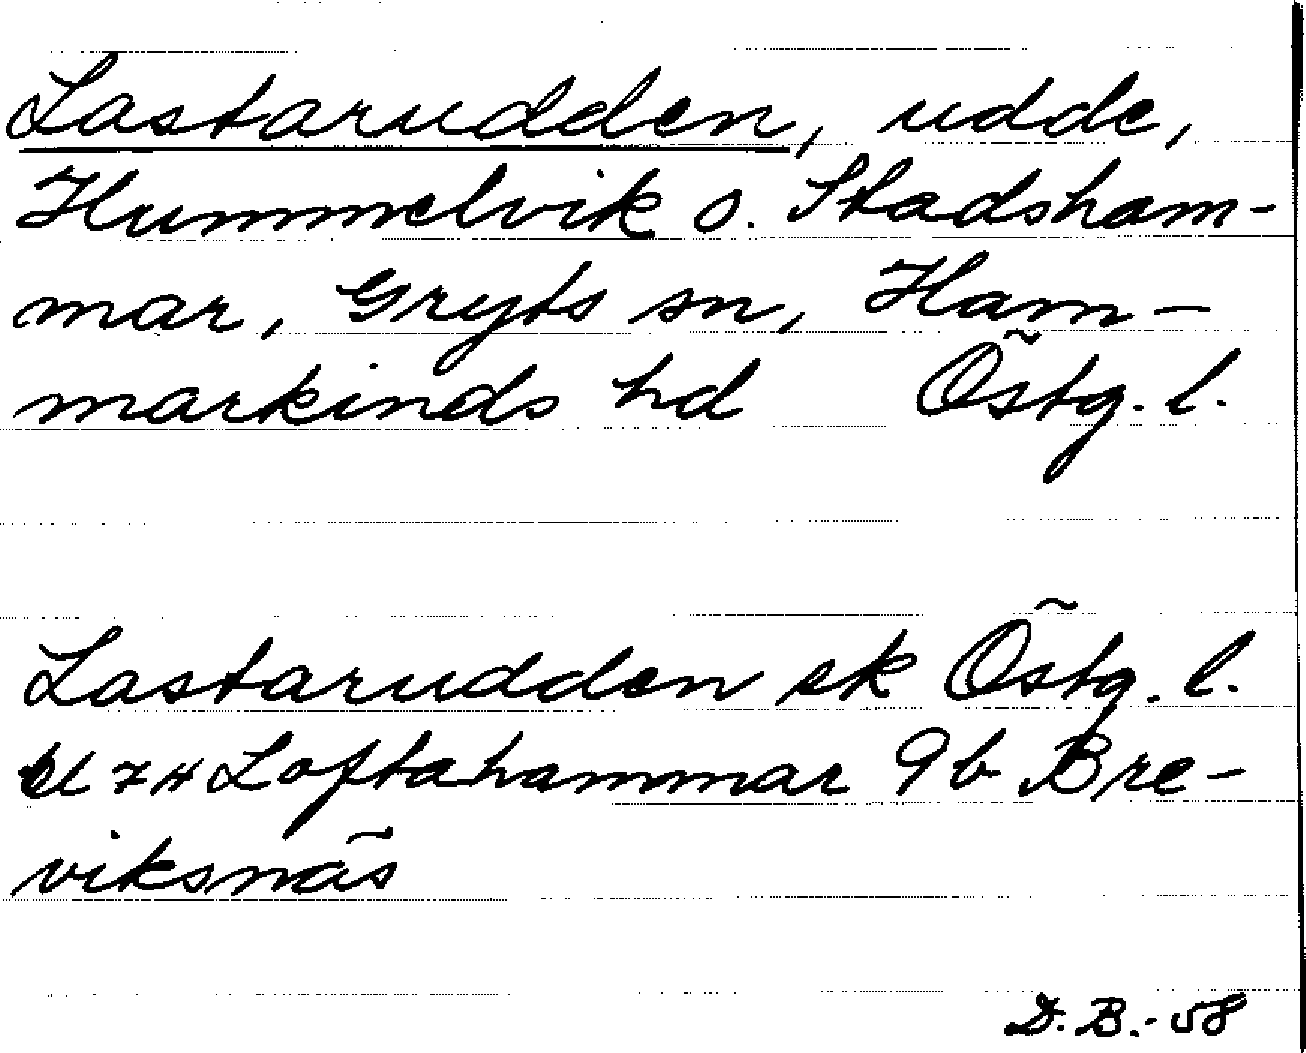 Lastarudden, udde,
Hummelvik o. Stadsham-
mar, Gryts sn, Ham-
markinds hd Östg. l.
Lastarudden ek Östg. l.
bl 7H Loftahammar 9b Bre-
viksnäs
D.B.-58